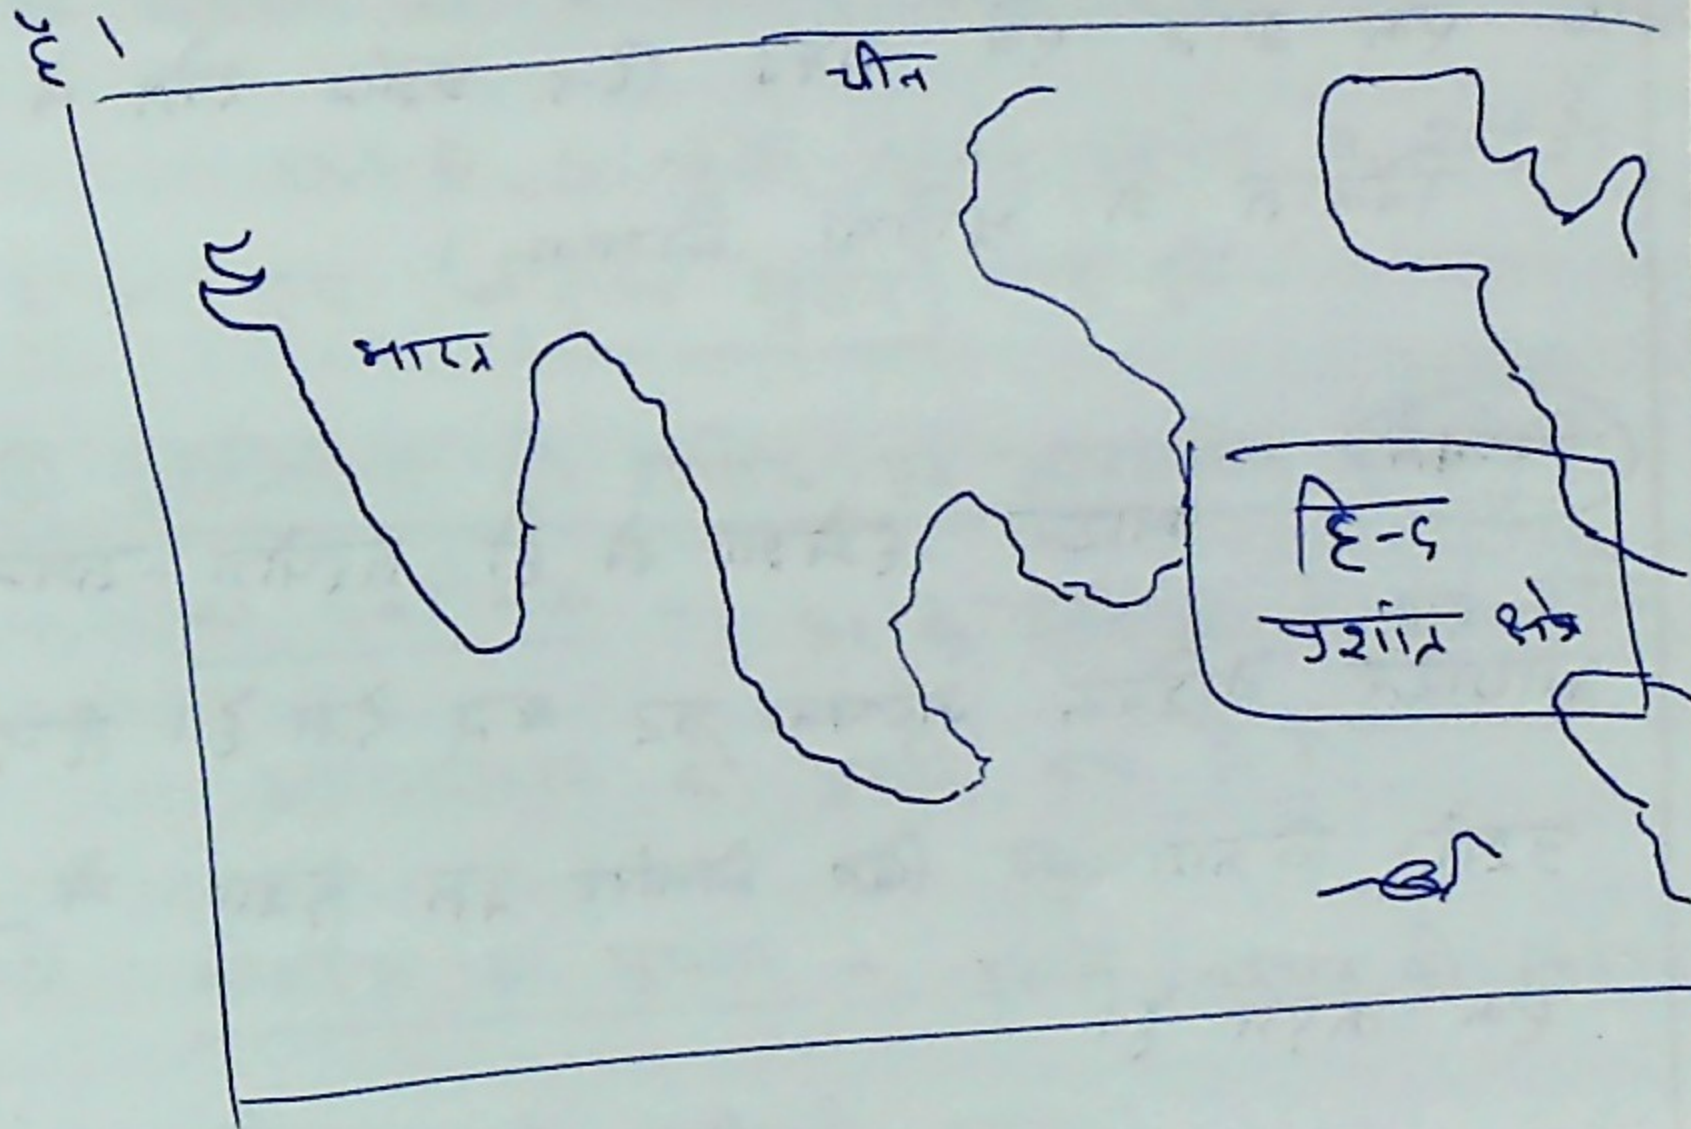 चीन
भारत
हिन्द
प्रशांत क्षेत्र